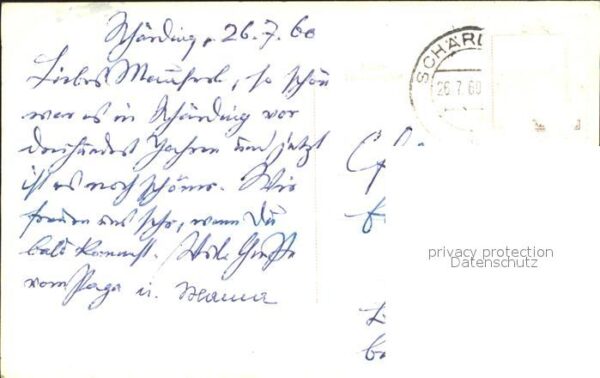 Schärding, 26.7.60
Liebes Mauserl, so schön
war es in Schärding vor
dreihundert Jahren und jetzt
ist es noch schöner. Wir
freuen uns sehr, wenn Du
bald kommst. Viele Grüße
vom Papa u. Mama
SCHÄRD
26.7.60
privacy protection
Datenschutz